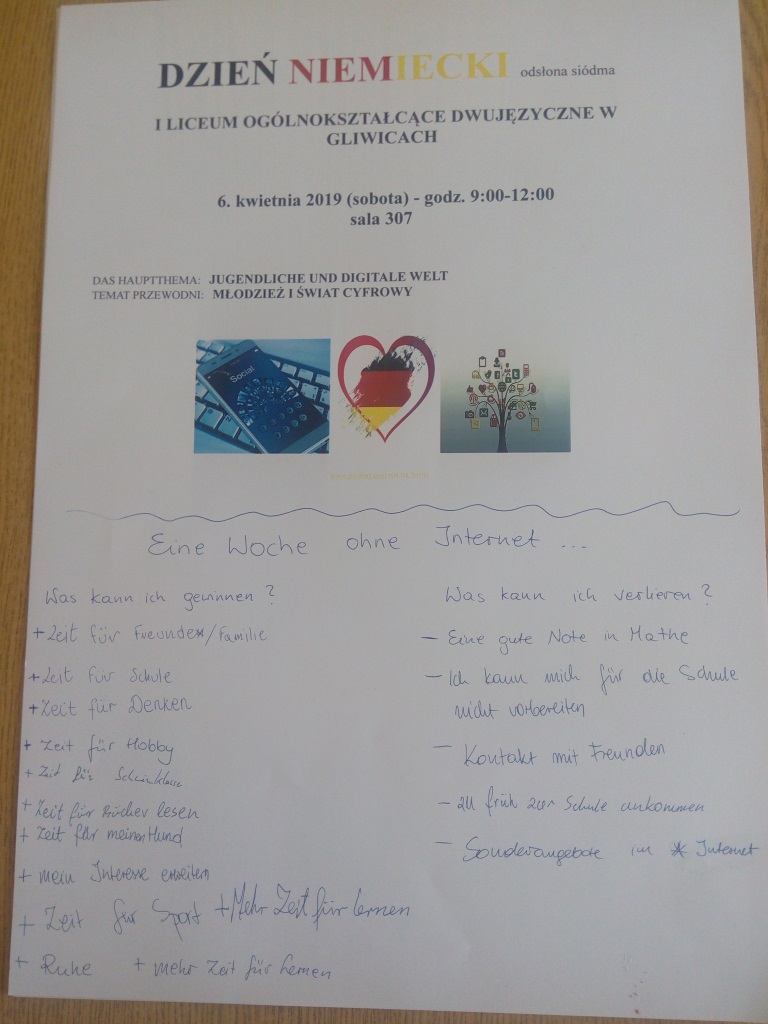 DZIEŃ NIEMIECKI odsłona siódma
I LICEUM OGÓLNOKSZTAŁCĄCE DWUJĘZYCZNE W
GLIWICACH
6. kwietnia 2019 (sobota) - godz. 9:00-12:00
sala 307
DAS HAUPTTHEMA: JUGENDLICHE UND DIGITALE WELT
TEMAT PRZEWODNI: MŁODZIEŻ I ŚWIAT CYFROWY
Social
Eine Woche ohne Internet...
Was kann ich gewinnen?
+ Zeit für Freunde/Familie
+ Zeit für Schule
+ Zeit für Denken
+ Zeit für Hobby
+ Zeit für
+ Zeit für Bücher lesen
+ Zeit für meinen Hund
+ mein Interesse erweitern
+ Zeit für Sport + Mehr Zeit für lernen
+ Ruhe + mehr Zeit für Lernen
Was kann ich verlieren?
- Eine gute Note in Mathe
- Ich kann mich für die Schule
nicht vorbereiten
- Kontakt mit Freunden
- zu früh zur Schule ankommen
- Sonderangebote im Internet